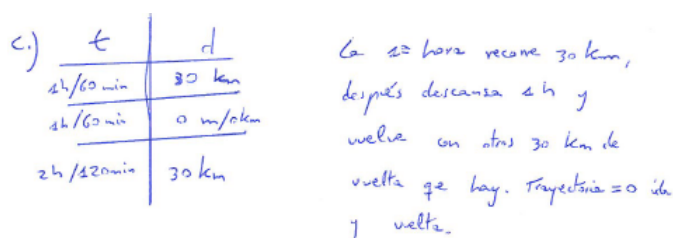 c.) t d
1h/60 min 30 km
1h/60 min 0 m/0km
2h/120min 30 km
La 1ª hora recorre 30 km,
después descansa 1 h y
vuelve con otros 30 km de
vuelta qe hay. Trayectoria=0 ida
y vuelta.